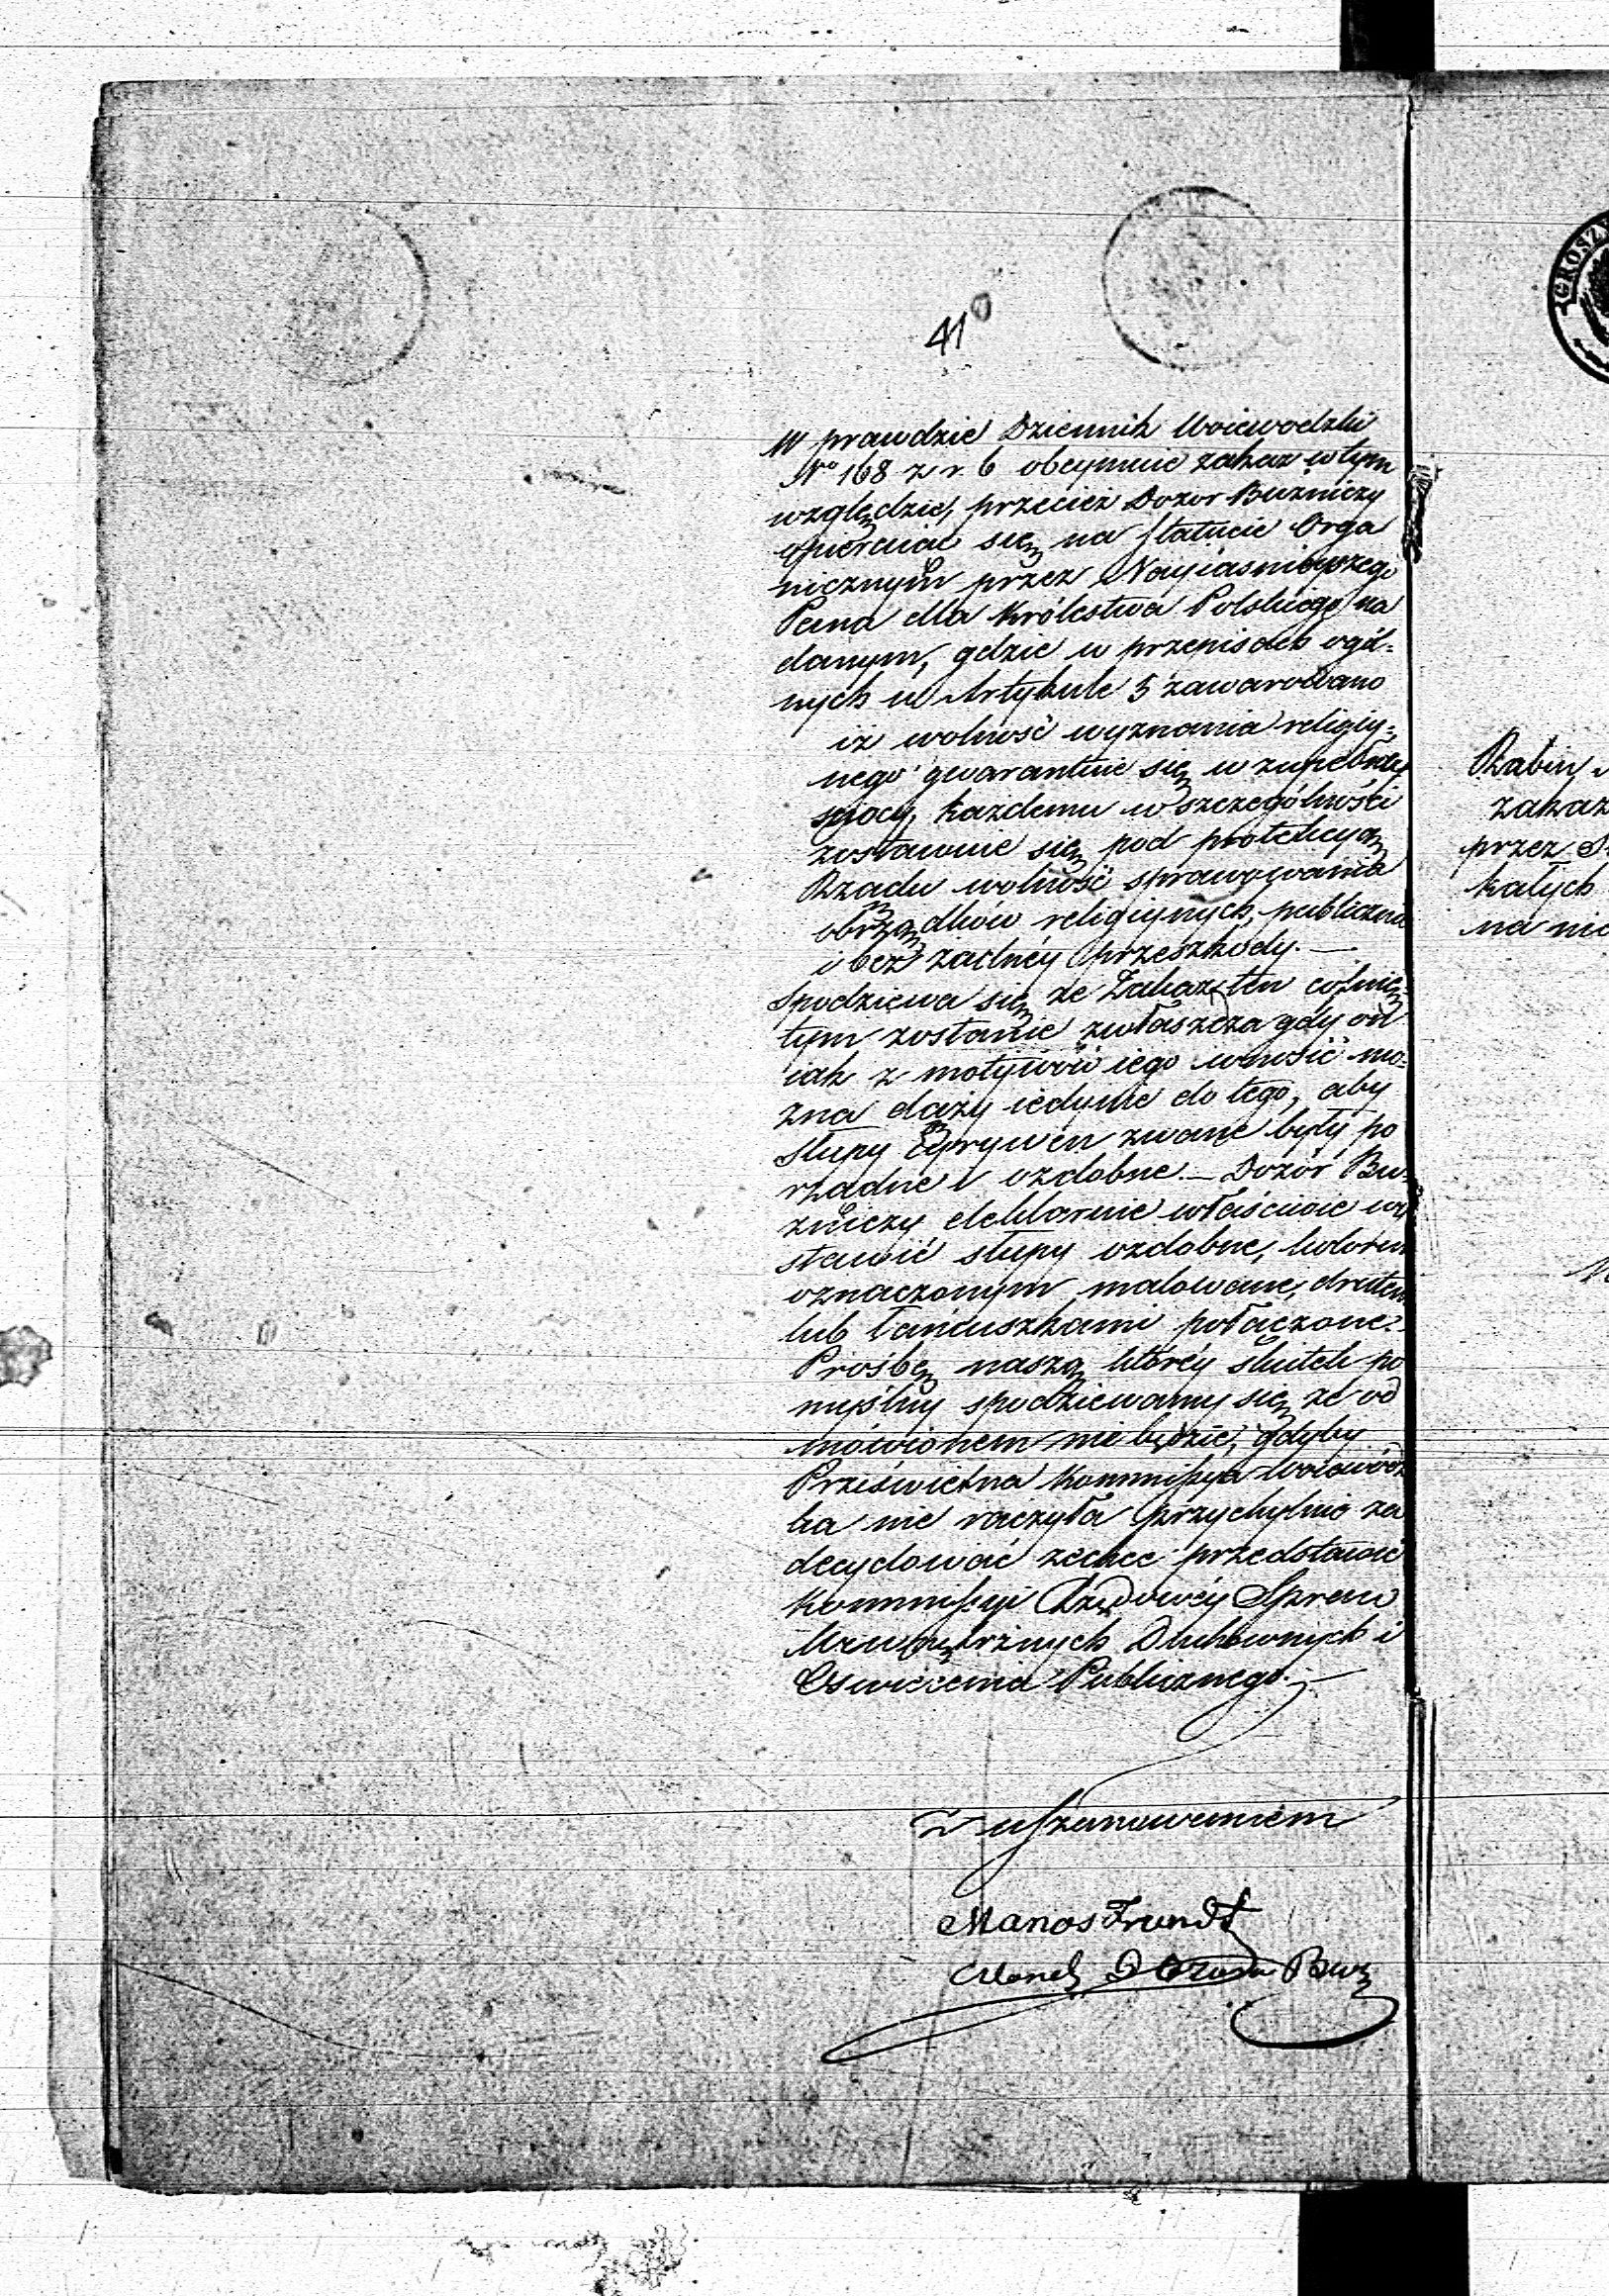 41
W prawdzie Dziennik Woiewodzki
No 168 z r. 6 obeymuie zakaz w tym
względzie, przecież Dozor Buzniczy
opieraiąc się na Statucie Orga
nicznym przez Nayiasnieyszego
Pana dla Królestwa Polskiego na
danym, gdzie w przepisach ogól-
nych w Artykule 5 zawarowano
iż wolność wyznania religiy-
nego gwarantuie się w zupełney
mocy, każdemu w szczególności
zostawuie się pod protekcyą
Rządu wolność sprawowania
obrządków religiynych, publicznie
i bez żadnéy przeszkody. —
Spodziewa się że Zakaz ten cofnię-
tym zostanie zwłaszcza gdy on
iak z motywów iego wnosić mo-
żna dąży iedynie do tego, aby
słupy zwane były po
rządne i ozdobne. — Dozór Bu-
żniczy deklaruie właściwie wy
stawić słupy ozdobne, kolorem
oznaczonym malowane, drutem
lub łańcuszkami połączone.
Prośbę naszą któréy skutek po
myślny spodziewamy się że od
mówionem nie będzie, gdyby
Prześwietna Kommissya Woiewódz
ka nie raczyła przychylnie za
decydować zechce przedstawić
Kommissyi Rządowéy Spraw
Wewnętrznych Duchownych i
Oswiecenia Publicznego. —
Z uszanowaniem
Manos Frendt
Członek Dozoru Buz
GROSZY
Rabin
zakaz
przez
kałych
na nic